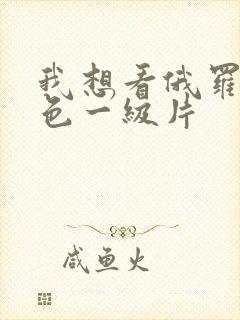 我想看俄罗
色一级片
咸鱼火